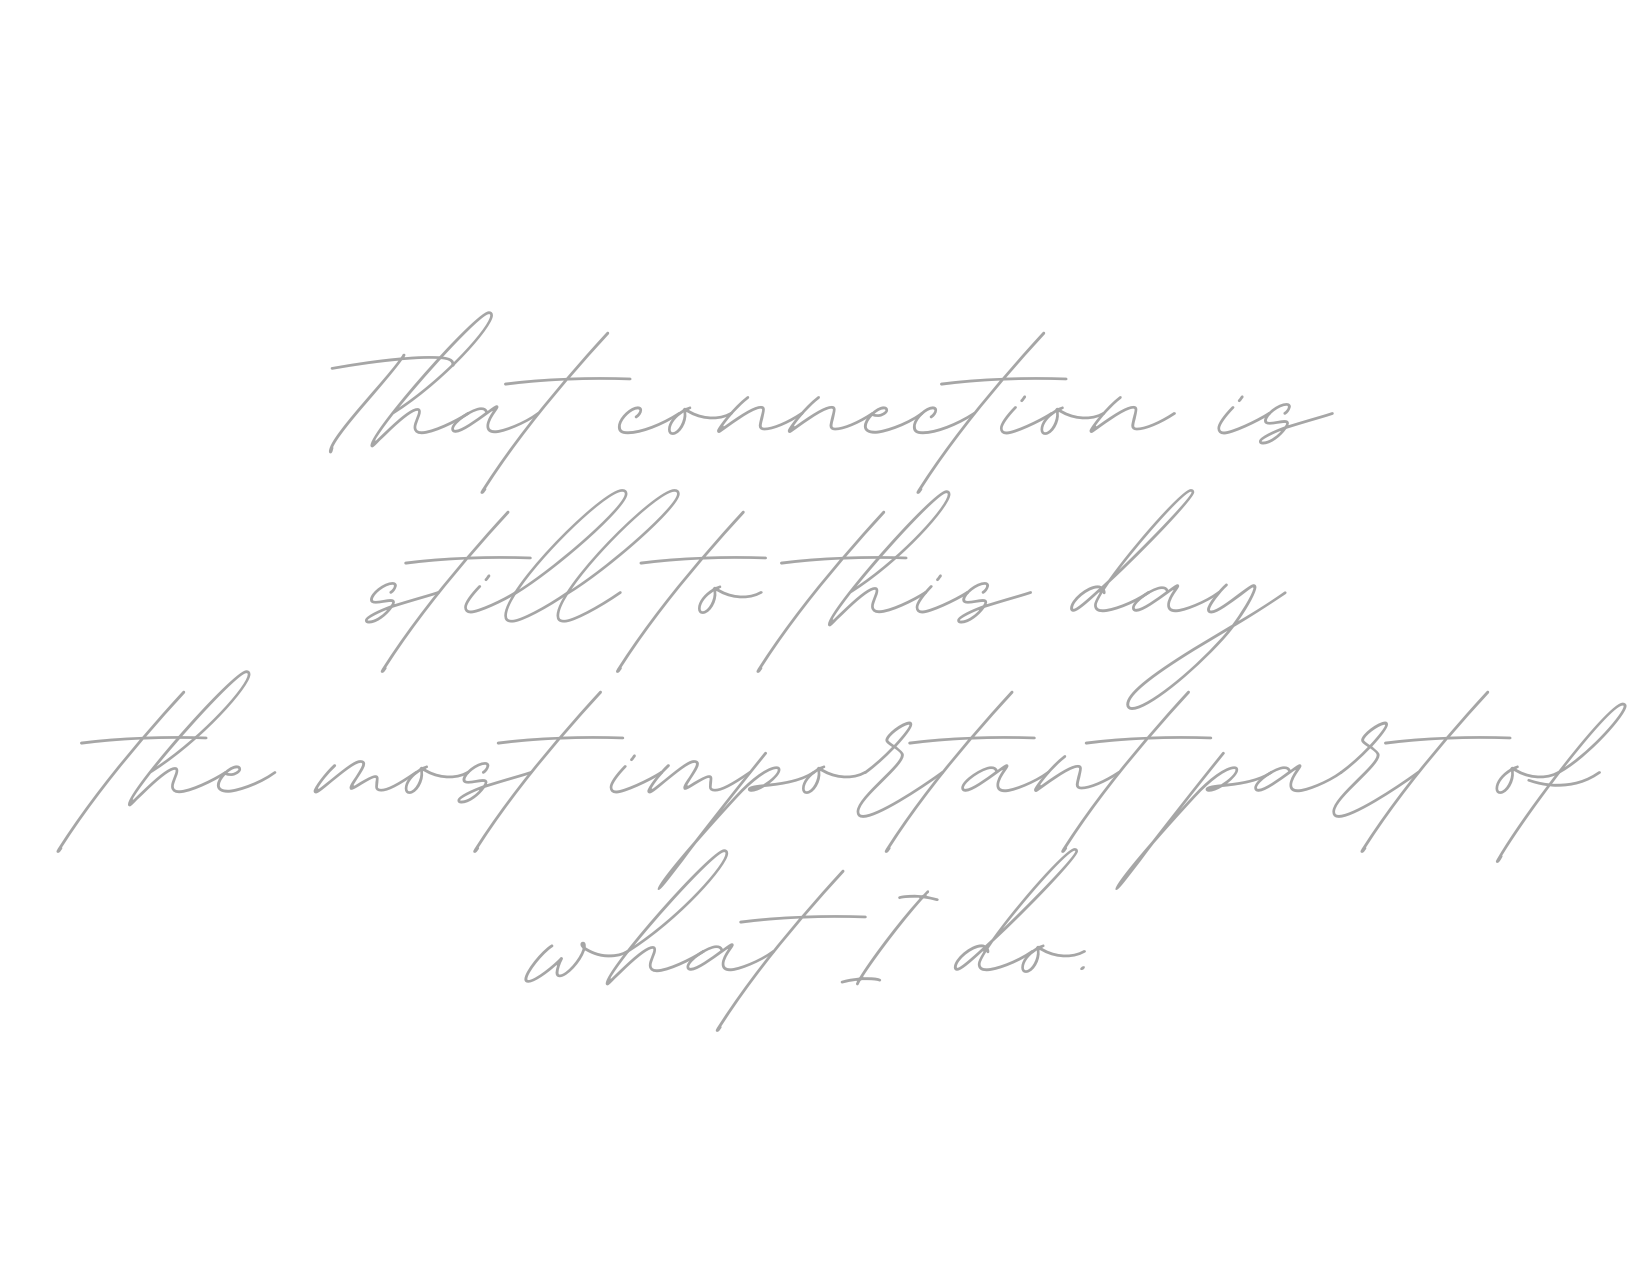 That connection is
still to this day
the most important part of
what I do.